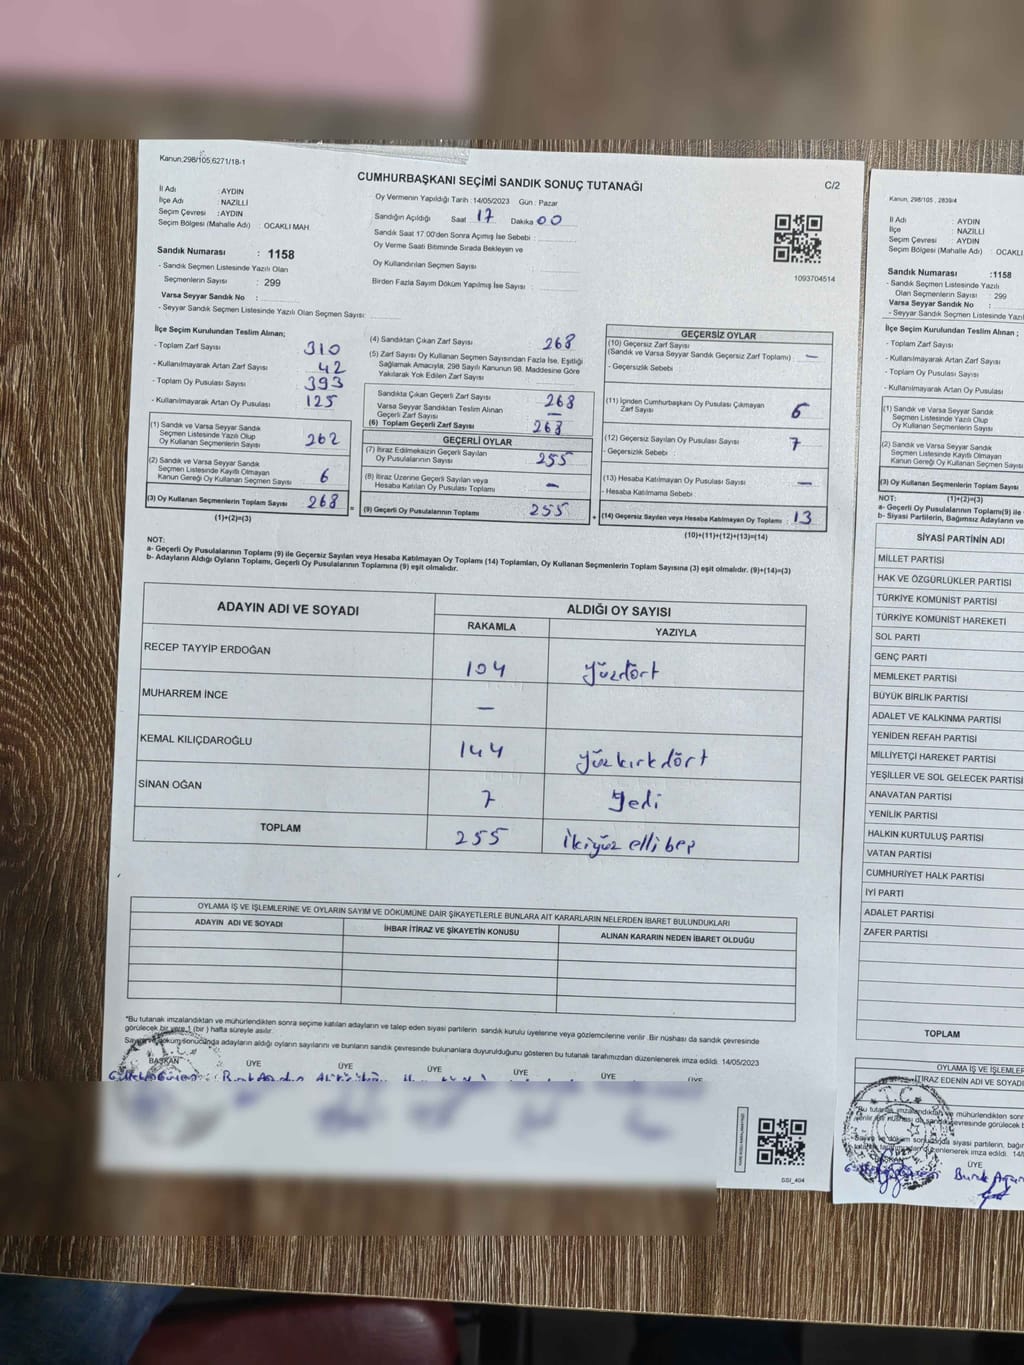 Kanun,298/105,6271/18-1
CUMHURBAŞKANI SEÇİMİ SANDIK SONUÇ TUTANAĞI
C/2
İl Adı : AYDIN
İlçe Adı : NAZİLLİ
Seçim Çevresi : AYDIN
Seçim Bölgesi (Mahalle Adı) : OCAKLI MAH
Sandık Numarası : 1158
- Sandık Seçmen Listesinde Yazılı Olan
Seçmenlerin Sayısı : 299
Varsa Seyyar Sandık No :
- Seyyar Sandık Seçmen Listesinde Yazılı Olan Seçmen Sayısı:
Oy Vermenin Yapıldığı Tarih : 14/05/2023 Gün : Pazar
Sandığın Açıldığı Saat 17 Dakika 00
Sandık Saat 17:00'den Sonra Açımış İse Sebebi :
Oy Verme Saati Bitiminde Sırada Bekleyen ve
Oy Kullandırılan Seçmen Sayısı
Birden Fazla Sayım Döküm Yapılmış İse Sayısı :
1093704514
İlçe Seçim Kurulundan Teslim Alınan;
- Toplam Zarf Sayısı 310
- Kullanılmayarak Artan Zarf Sayısı 42
- Toplam Oy Pusulası Sayısı 393
- Kullanılmayarak Artan Oy Pusulası 125
(1) Sandık ve Varsa Seyyar Sandık
Seçmen Listesinde Yazılı Olup
Oy Kullanan Seçmenlerin Sayısı 262
(2) Sandık ve Varsa Seyyar Sandık
Seçmen Listesinde Kayıtlı Olmayan
Kanun Gereği Oy Kullanan Seçmen Sayısı 6
(3) Oy Kullanan Seçmenlerin Toplam Sayısı 268
(1)+(2)=(3)
(4) Sandıktan Çıkan Zarf Sayısı 268
(5) Zarf Sayısı Oy Kullanan Seçmen Sayısından Fazla İse, Eşitliği
Sağlamak Amacıyla, 298 Sayılı Kanunun 98. Maddesine Göre
Yakılarak Yok Edilen Zarf Sayısı
Sandıkta Çıkan Geçerli Zarf Sayısı 268
Varsa Seyyar Sandıktan Teslim Alınan
Geçerli Zarf Sayısı —
(6) Toplam Geçerli Zarf Sayısı 268
GEÇERLİ OYLAR
(7) İtiraz Edilmeksizin Geçerli Sayılan
Oy Pusulalarının Sayısı 255
(8) İtiraz Üzerine Geçerli Sayılan veya
Hesaba Katılan Oy Pusulası Toplamı —
= (9) Geçerli Oy Pusulalarının Toplamı 255
GEÇERSİZ OYLAR
(10) Geçersiz Zarf Sayısı
(Sandık ve Varsa Seyyar Sandık Geçersiz Zarf Toplamı) : —
- Geçersizlik Sebebi :
(11) İçinden Cumhurbaşkanı Oy Pusulası Çıkmayan
Zarf Sayısı 6
(12) Geçersiz Sayılan Oy Pusulası Sayısı 7
- Geçersizlik Sebebi :
(13) Hesaba Katılmayan Oy Pusulası Sayısı —
- Hesaba Katılmama Sebebi :
+ (14) Geçersiz Sayılan veya Hesaba Katılmayan Oy Toplamı : 13
(10)+(11)+(12)+(13)=(14)
NOT:
a- Geçerli Oy Pusulalarının Toplamı (9) ile Geçersiz Sayılan veya Hesaba Katılmayan Oy Toplamı (14) Toplamları, Oy Kullanan Seçmenlerin Toplam Sayısına (3) eşit olmalıdır. (9)+(14)=(3)
b- Adayların Aldığı Oyların Toplamı, Geçerli Oy Pusulalarının Toplamına (9) eşit olmalıdır.
ADAYIN ADI VE SOYADI
ALDIĞI OY SAYISI
RAKAMLA YAZIYLA
RECEP TAYYİP ERDOĞAN 104 Yüzdört
MUHARREM İNCE —
KEMAL KILIÇDAROĞLU 144 Yüzkırkdört
SİNAN OĞAN 7 Yedi
TOPLAM 255 İkiyüz elli beş
OYLAMA İŞ VE İŞLEMLERİNE VE OYLARIN SAYIM VE DÖKÜMÜNE DAİR ŞİKAYETLERLE BUNLARA AİT KARARLARIN NELERDEN İBARET BULUNDUKLARI
ADAYIN ADI VE SOYADI
İHBAR İTİRAZ VE ŞİKAYETİN KONUSU
ALINAN KARARIN NEDEN İBARET OLDUĞU
*Bu tutanak imzalandıktan ve mühürlendikten sonra seçime katılan adayların ve talep eden siyasi partilerin sandık kurulu üyelerine veya gözlemcilerine verilir. Bir nüshası da sandık çevresinde
görülecek bir yere 1 (bir) hafta süreyle asılır.
döküm sonucunda adayların aldığı oyların sayılarını ve bunların sandık çevresinde bulunanlara duyurulduğunu gösteren bu tutanak tarafımızdan düzenlenerek imza edildi. 14/05/2023
BAŞKAN ÜYE ÜYE ÜYE ÜYE ÜYE ÜYE
SSI_404
Kanun, 298/105 , 2839/4
İl Adı : AYDIN
İlçe : NAZİLLİ
Seçim Çevresi : AYDIN
Seçim Bölgesi (Mahalle Adı) : OCAKLI
Sandık Numarası :1158
- Sandık Seçmen Listesinde Yazılı
Olan Seçmenlerin Sayısı : 299
Varsa Seyyar Sandık No :
- Seyyar Sandık Seçmen Listesinde
İlçe Seçim Kurulundan Teslim Alınan;
- Toplam Zarf Sayısı
- Kullanılmayarak Artan Zarf Sayısı
- Toplam Oy Pusulası Sayısı
- Kullanılmayarak Artan Oy Pusulası
(1) Sandık ve Varsa Seyyar Sandık
Seçmen Listesinde Yazılı Olup
Oy Kullanan Seçmenlerin Sayısı
(2) Sandık ve Varsa Seyyar Sandık
Seçmen Listesinde Kayıtlı Olmayan
Kanun Gereği Oy Kullanan Seçmen Sayısı
(3) Oy Kullanan Seçmenlerin Toplam
NOT: (1)+(2)=(3)
a- Geçerli Oy Pusulalarının Toplamı(9) ile
b- Siyasi Partilerin, Bağımsız Adayların ve
SİYASİ PARTİNİN ADI
MİLLET PARTİSİ
HAK VE ÖZGÜRLÜKLER PARTİSİ
TÜRKİYE KOMÜNİST PARTİSİ
TÜRKİYE KOMÜNİST HAREKETİ
SOL PARTİ
GENÇ PARTİ
MEMLEKET PARTİSİ
BÜYÜK BİRLİK PARTİSİ
ADALET VE KALKINMA PARTİSİ
YENİDEN REFAH PARTİSİ
MİLLİYETÇİ HAREKET PARTİSİ
YEŞİLLER VE SOL GELECEK PARTİSİ
ANAVATAN PARTİSİ
YENİLİK PARTİSİ
HALKIN KURTULUŞ PARTİSİ
VATAN PARTİSİ
CUMHURİYET HALK PARTİSİ
İYİ PARTİ
ADALET PARTİSİ
ZAFER PARTİSİ
TOPLAM
OYLAMA İŞ VE İŞLEMLER
İTİRAZ EDENİN ADI VE SOYADI
*Bu tutanak imzalandıktan ve mühürlendikten
çevresinde görülecek
sonucunda siyasi partilerin,
düzenlenerek imza edildi.
T.C.
ÜYE
Burak